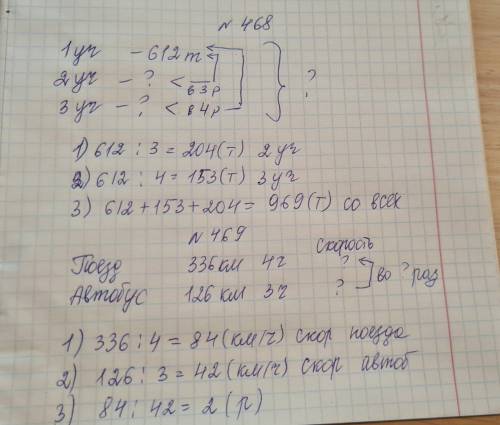 № 468
1 уч - 612 т
2 уч - ? < в 3 р
3 уч - ? < в 4 р
?
1) 612 : 3 = 204 (т) 2 уч
2) 612 : 4 = 153 (т) 3 уч
3) 612 + 153 + 204 = 969 (т) со всех
№ 469
скорость
Поезд 336 км 4 ч ?
Автобус 126 км 3 ч ? во ? раз
1) 336 : 4 = 84 (км/ч) скор поезда
2) 126 : 3 = 42 (км/ч) скор автоб
3) 84 : 42 = 2 (р)